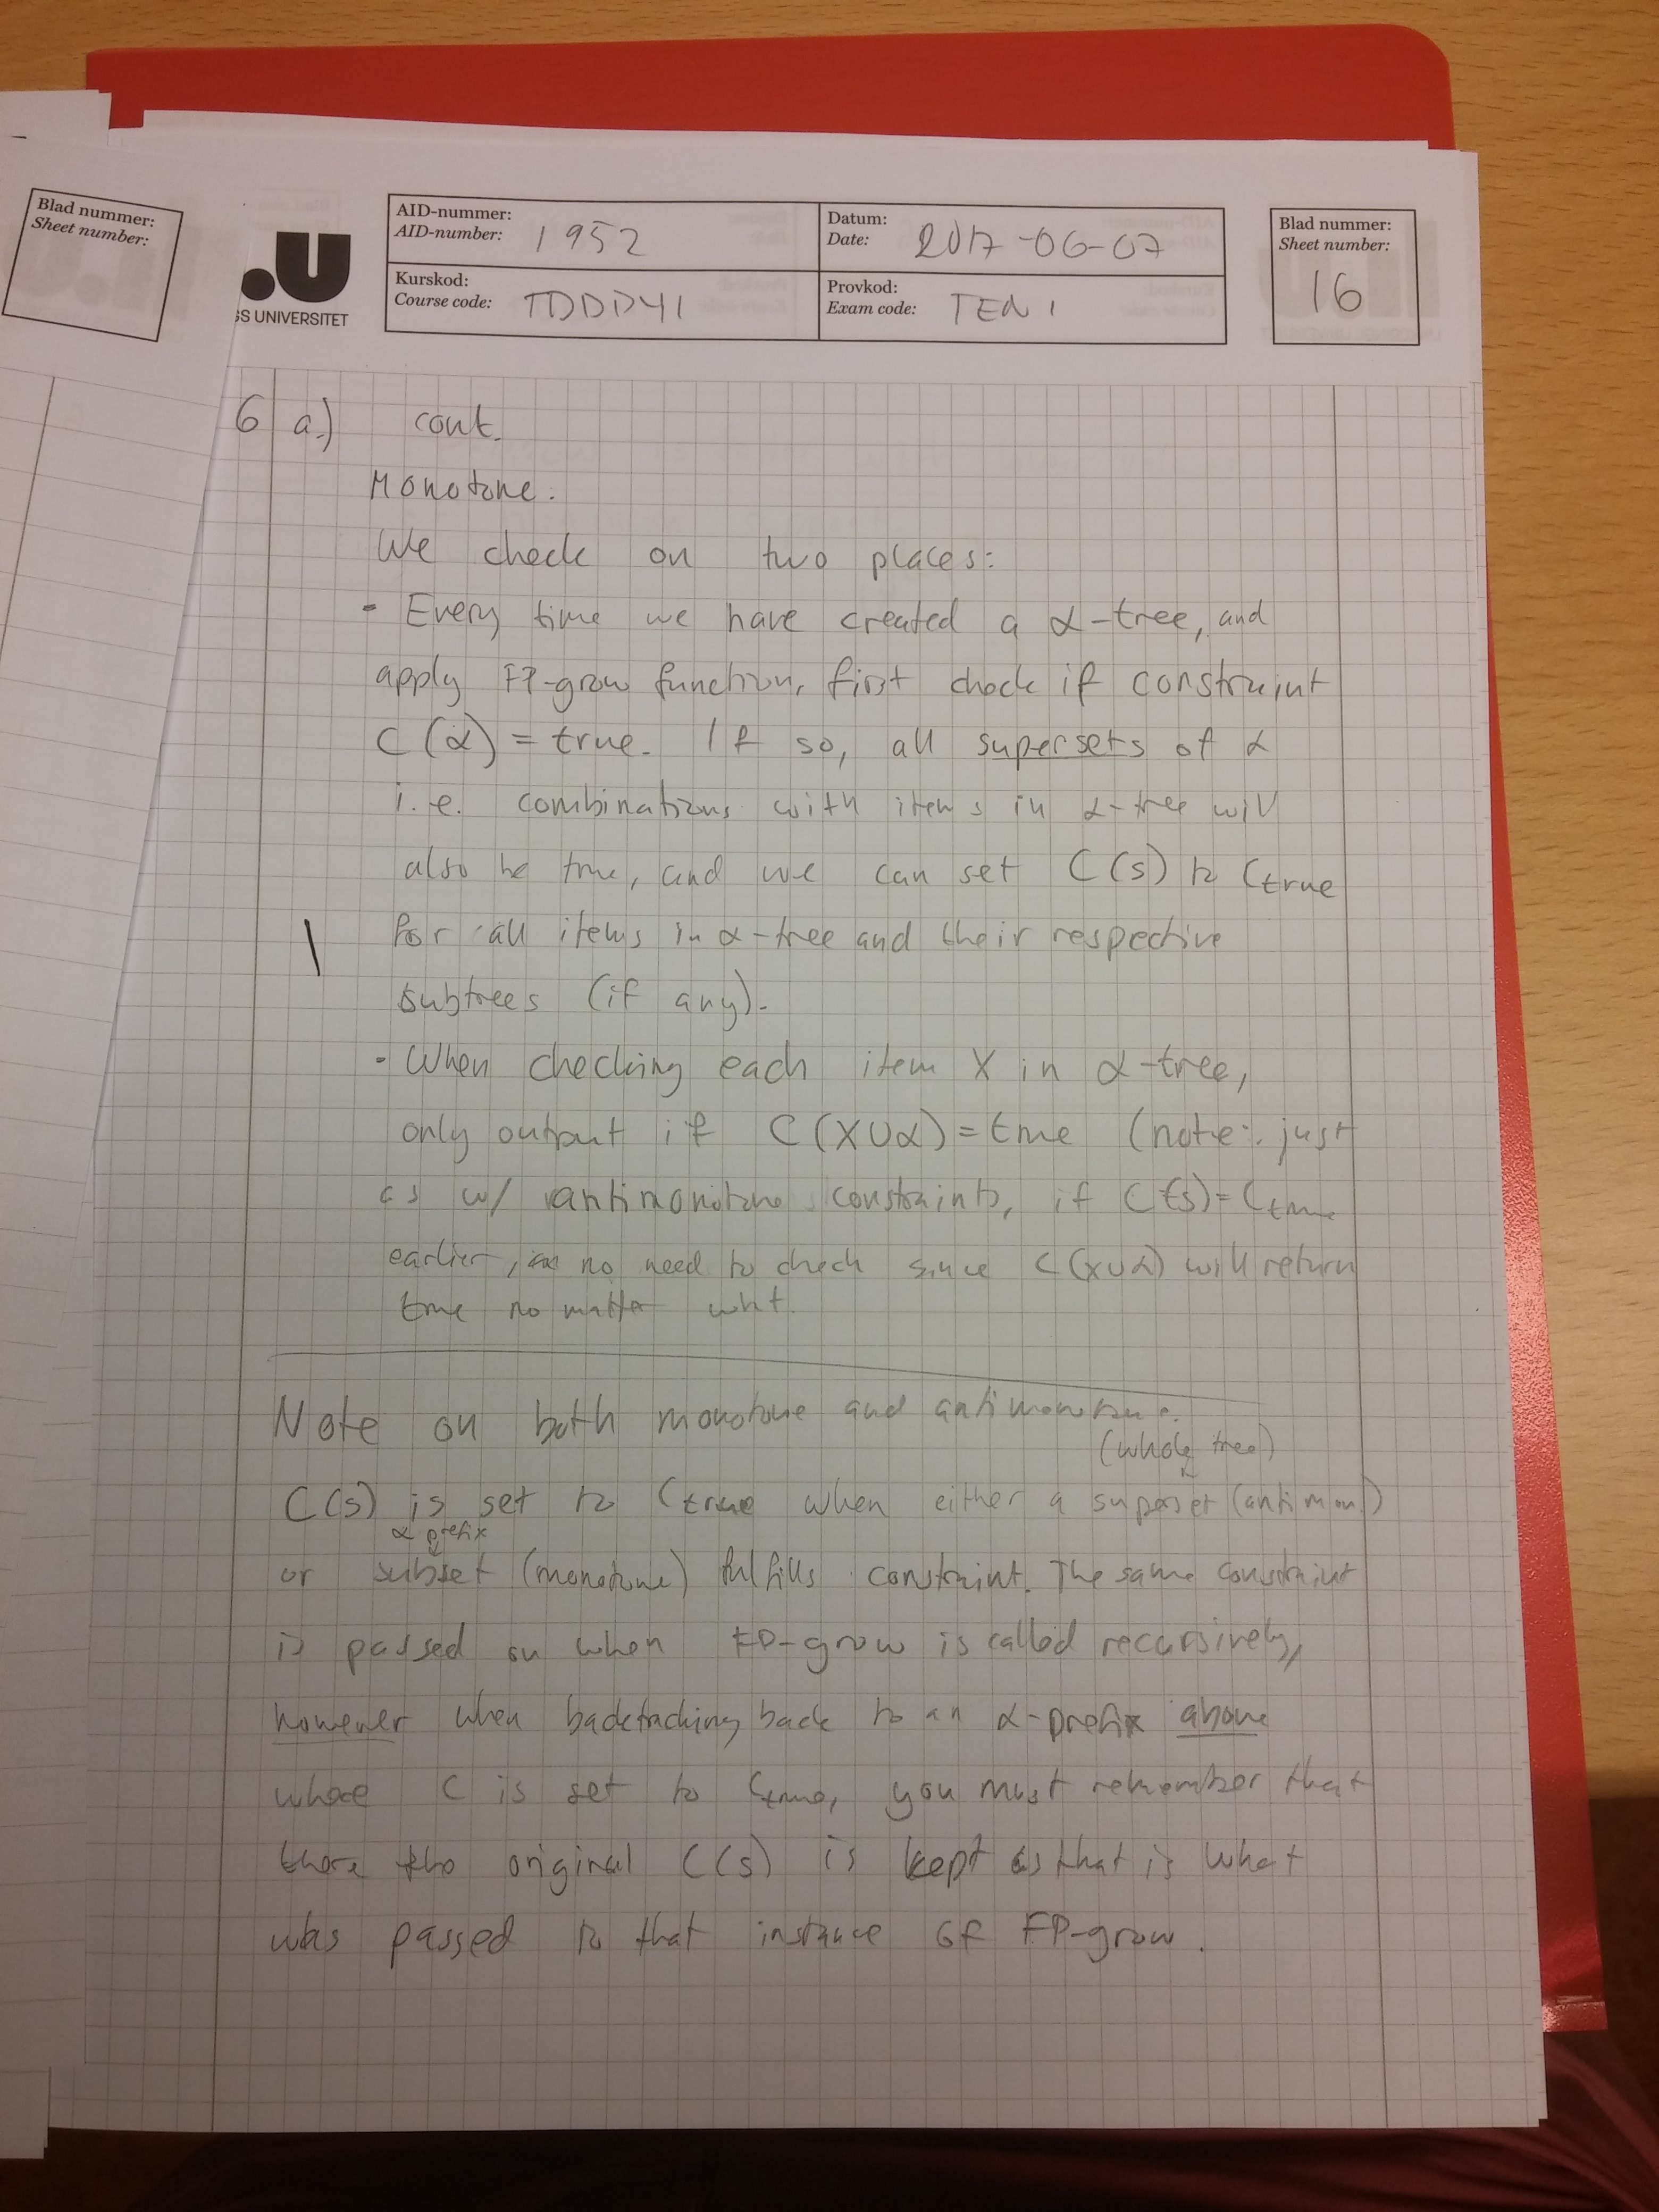 Blad nummer:
Sheet number:
.U
SS UNIVERSITET
AID-nummer:
AID-number: 1952
Datum:
Date: 2017-06-07
Blad nummer:
Sheet number:
16
Kurskod:
Course code: TDDD41
Provkod:
Exam code: TEN1
6 a.) cont.
Monotone:
We check on two places:
- Every time we have created a α-tree, and
apply FP-grow function, first check if constraint
C(α) = true. If so, all supersets of α
i.e. combinations with items in α-tree will
also be true, and we can set C(s) to Ctrue
for all items in α-tree and their respective
subtrees (if any).
- When checking each item X in α-tree,
only output if C(X∪α)=true (note: just
as w/ antimonotone constraints, if C(s)=Ctrue
earlier, no need to check since C(X∪α) will return
true no matter what.
Note on both monotone and antimonotone.
(whole tree)
C(s) is set to Ctrue when either a superset (antimon.)
α prefix
or subset (monotone) fulfills constraint. The same constraint
is passed on when FP-grow is called recursively,
however when backtracking back to an α-prefix above
where C is set to Ctrue, you must remember that
there the original C(s) is kept as that is what
was passed to that instance of FP-grow.